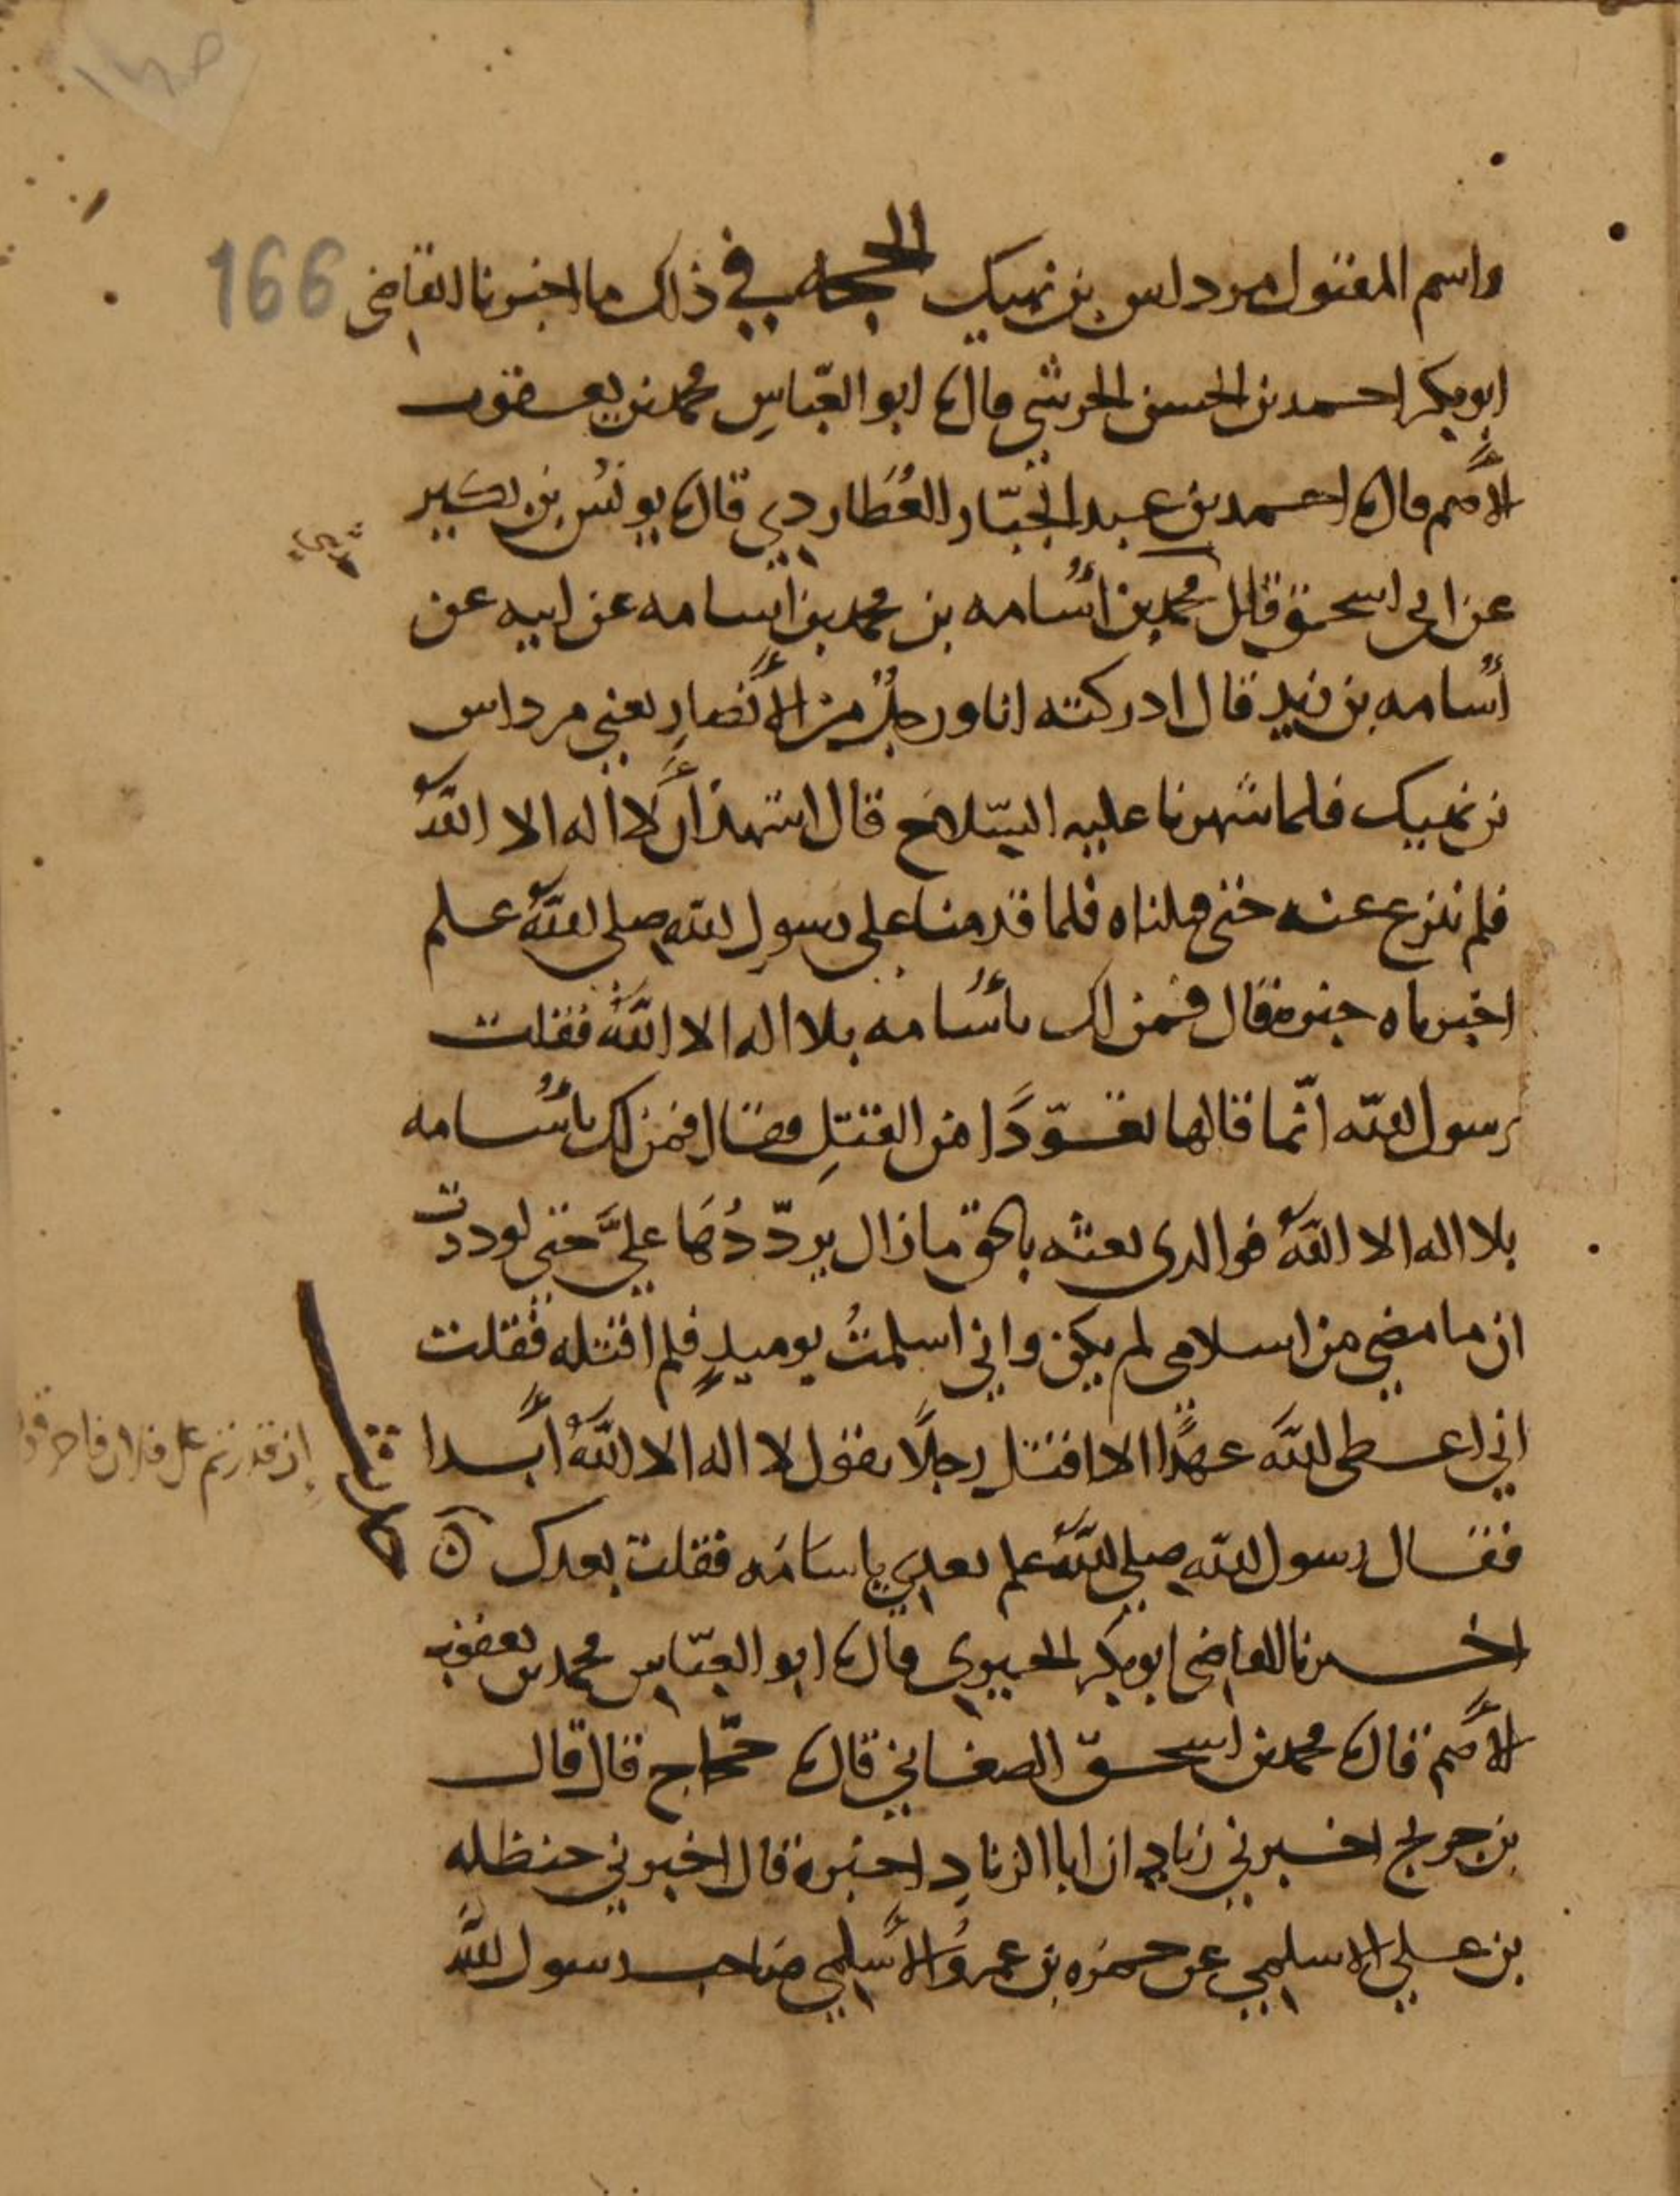 166
واسم المقتول مرداس بن نهيك الحجه في ذلك ما اخبرنا القاضي
ابو بكر احمد بن الحسن الحرشي قال نا ابو العبّاسِ محمد بن يعقوب
الأصم قال نا احمد بن عبد الجبّار العُطاردي قال نا يونسُ بن بكير
عن ابي اسحق قال محمد بن أُسامه بن محمد بن أسامه عن ابيه عن
أُسامه بن زيد قال ادركته انا ورجلٌ من الأنصارِ يعني مرداس
بن نهيك فلما شهرنا عليه السّلاح قال اشهد أن لا اله الا اللهُ
فلم ننزع عنه حتى قتلناه فلما قدمنا على رسولِ الله صلى الله علم
اخبرناه خبره فقال فمن لك يأُسامه بلا اله الا اللهُ فقلت
رسول الله انّما قالها تعوّدًا من القتلِ فقال فمن لك يأُسامه
بلا اله الا اللهُ فوالدي بعثه بالحق ما زال يردّدُهَا عليَّ حتى لوددت
ان ما مضى من اسلامي لم يكن واني اسلمتُ يوميدٍ فلم اقتله فقلت
اني اعطى اللهَ عهدًا الا اقتل رجلًا يقول لا اله الا اللهُ أبدا
فقال رسول اللهِ صلى اللهُ علم بعدي ياسامَه فقلت بعدك ۞
اخبرنا القاضي ابو بكر الحيري قال نا ابو العبّاس محمد بن يعقوب
الأصم قال نا محمد بن اسحق الصغاني قال نا حجّاج قال قال
بن جريج اخبرني زياد ان ابا الزنادِ اخبره قال اخبرني حنظله
بن علي الاسلمي عن حمزه بن عمروُ الأسلمي صاحب رسول الله
إن قدرتم على فلان فاحرقوا